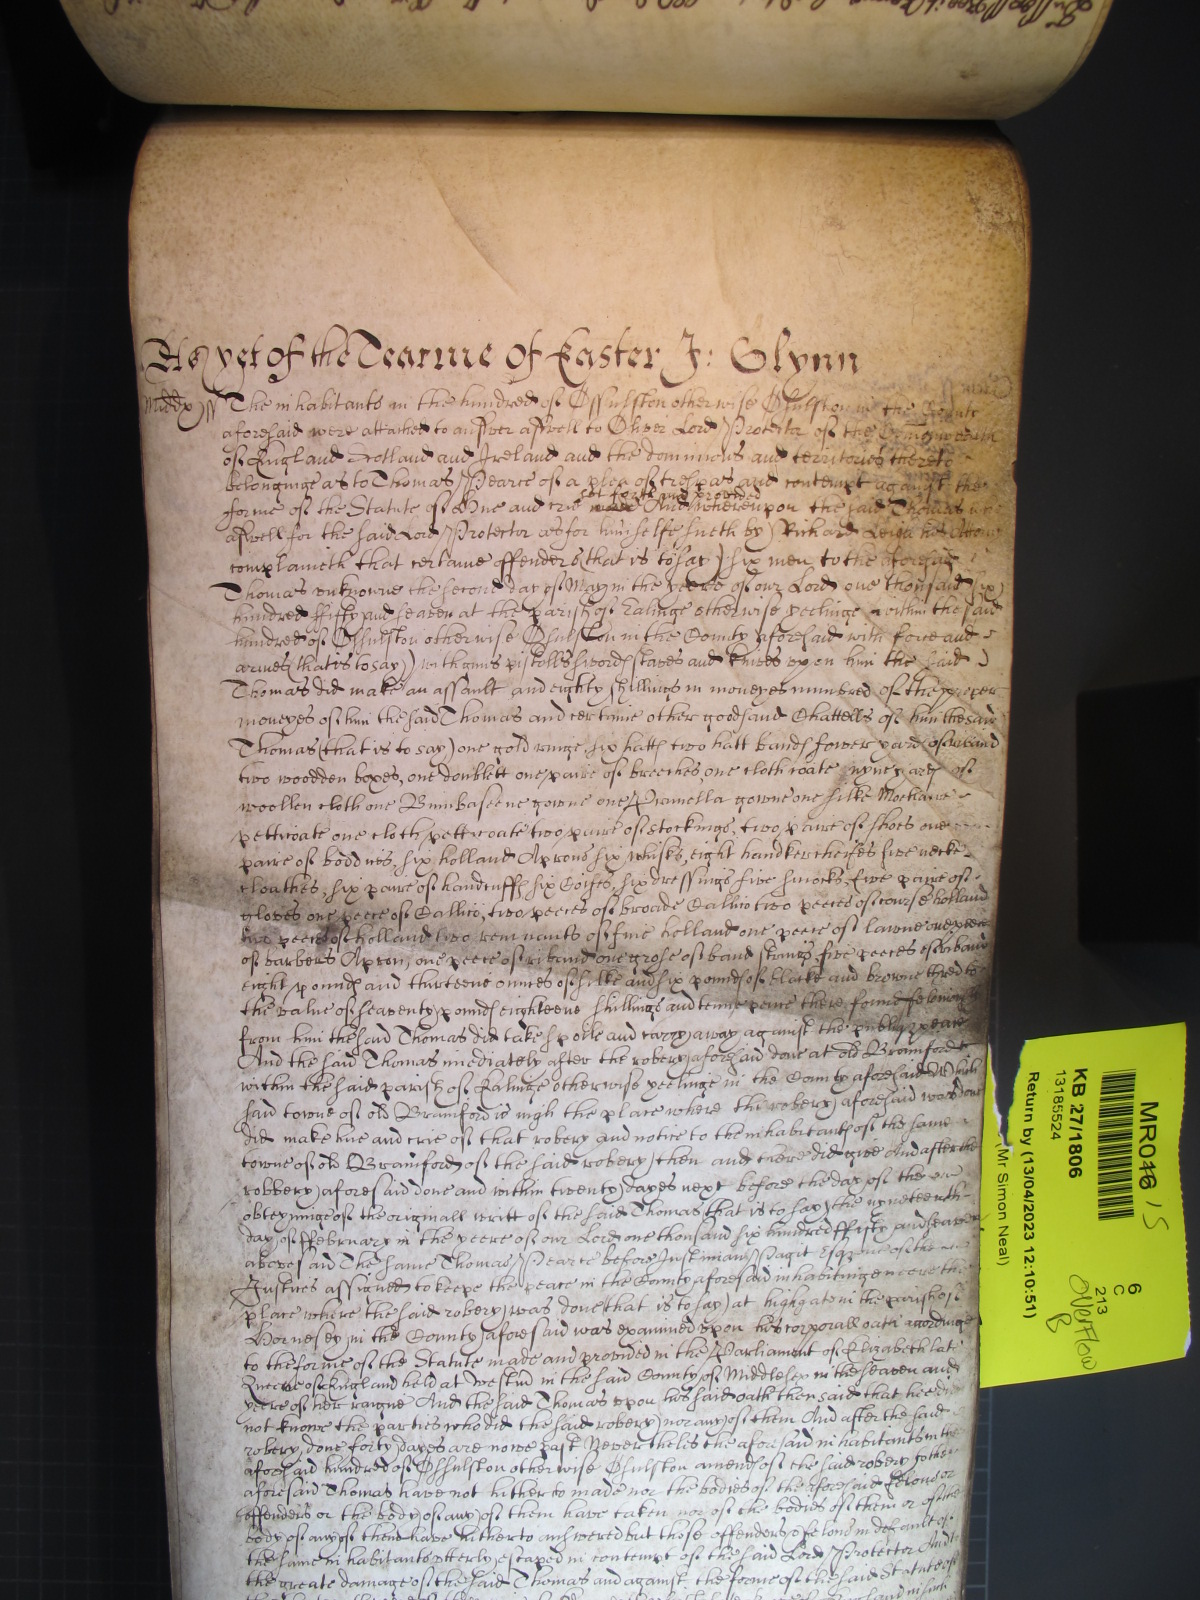 As yet of the Tearme of Easter J: Glynn
Middx ss The inhabitants in the hundred of Ossulston otherwise Osulston in the County
aforesaid were attached to answer aswell to Oliver Lord Protector of the Comonwealth
of England Scotland and Ireland and the dominions and territories thereto
belonginge as to Thomas Pearce of a plea of trespas and contempt against the
forme of the Statute of Hue and crie set forth and provided And whereupon the said Thomas who
aswell for the said Lord Protector as for himselfe sueth by Richard Leigh his Attorny
complaineth that certaine offenders (that is to say) six men to the aforesaid
Thomas unknowne the second day of May in the yeere of our Lord one thousand six
hundred ffifty and seaven at the parish of Ealinge otherwise Yeelinge within the said
hundred of Ossulston otherwise Osulston in the County aforesaid with force and
armes (that is to say) with guns pistolls swords staves and knives upon him the said
Thomas did make an assault and eighty shillings in moneyes numbred of the proper
moneyes of him the said Thomas and certaine other goods and Chattells of him the said
Thomas (that is to say) one gold ringe, six hatts two hatt bands fower yards of riband
two woodden boxes, one doublett one paire of breeches, one cloth coate nyne yards of
woollen cloth one Bumbaseene gowne one Prunella gowne one silke Mochaire
petticoate one cloth petticoate two paire of stockings, two paire of shoes one
paire of boddyes, six holland Aprons six whisks, eight handkercheifes five necke
cloathes, six paire of handcuffs six Coifes, six dressings five smocks, five paire of
gloves one peece of Callico, two peeces of broade Callico two peeces of course holland
two peeces of holland two remnants of fine holland one peece of lawne one peece
of barbers Apron, one peece of riband one grose of band strings five peeces of riband
eight pounds and thirteene ounces of silke and six pounds of blacke and browne thred to
the value of seaventy pounds eighteene shillings and tenne pence there found feloniously
from him the said Thomas did take spoile and carry away against the publique peace
And the said Thomas imediately after the robery aforesaid done at old Brainford
within the said parish of Ealinge otherwise Yeelinge in the County aforesaid Which
said towne of old Brainford is nigh the place where the robery aforesaid was done
did make hue and crie of that robery and notice to the inhabitants of the same
towne of old Brainford of the said robery then and there did give And after the
robbery aforesaid done and within twenty dayes next before the day of the
obteyninge of the originall writt of the said Thomas that is to say the nyneteenth
day of ffebruary in the yeere of our Lord one thousand six hundred ffifty and seaven
abovesaid The same Thomas Pearce before Justinian Pagit Esqr one of the
Justices assigned to keepe the peace in the County aforesaid inhabitinge neere the
place where the said robery was done (that is to say) at highgate in the parish of
Hornesey in the County aforesaid was examined upon his corporall oath accordinge
to the forme of the Statute made and provided in the Parliament of Elizabeth late
Queene of England held at Westm in the said County of Middlesex in the seaven and
yeere of her raigne And the said Thomas upon his said oath then said that hee did
not knowe the parties who did the said robery nor any of them And after the said
robery done forty dayes are nowe past Neverthelesse the aforesaid inhabitants in the
aforesaid hundred of Ossulston otherwise Osulston amends of the said robery to the
aforesaid Thomas have not hitherto made nor the bodies of the aforesaid felons or
offenders or the body of any of them have taken nor of the bodies of them or of the
body of any of them have hitherto answered but those offenders & felons in default of
the same inhabitants utterly escaped in contempt of the said Lord Protector And to
the great damage of the said Thomas and against the forme of the said Statute of
MR016 15
KB 27/1806
13185524
Return by (13/04/2023 12:10:51)
(Mr Simon Neal)
6
C
213
Overflow
B